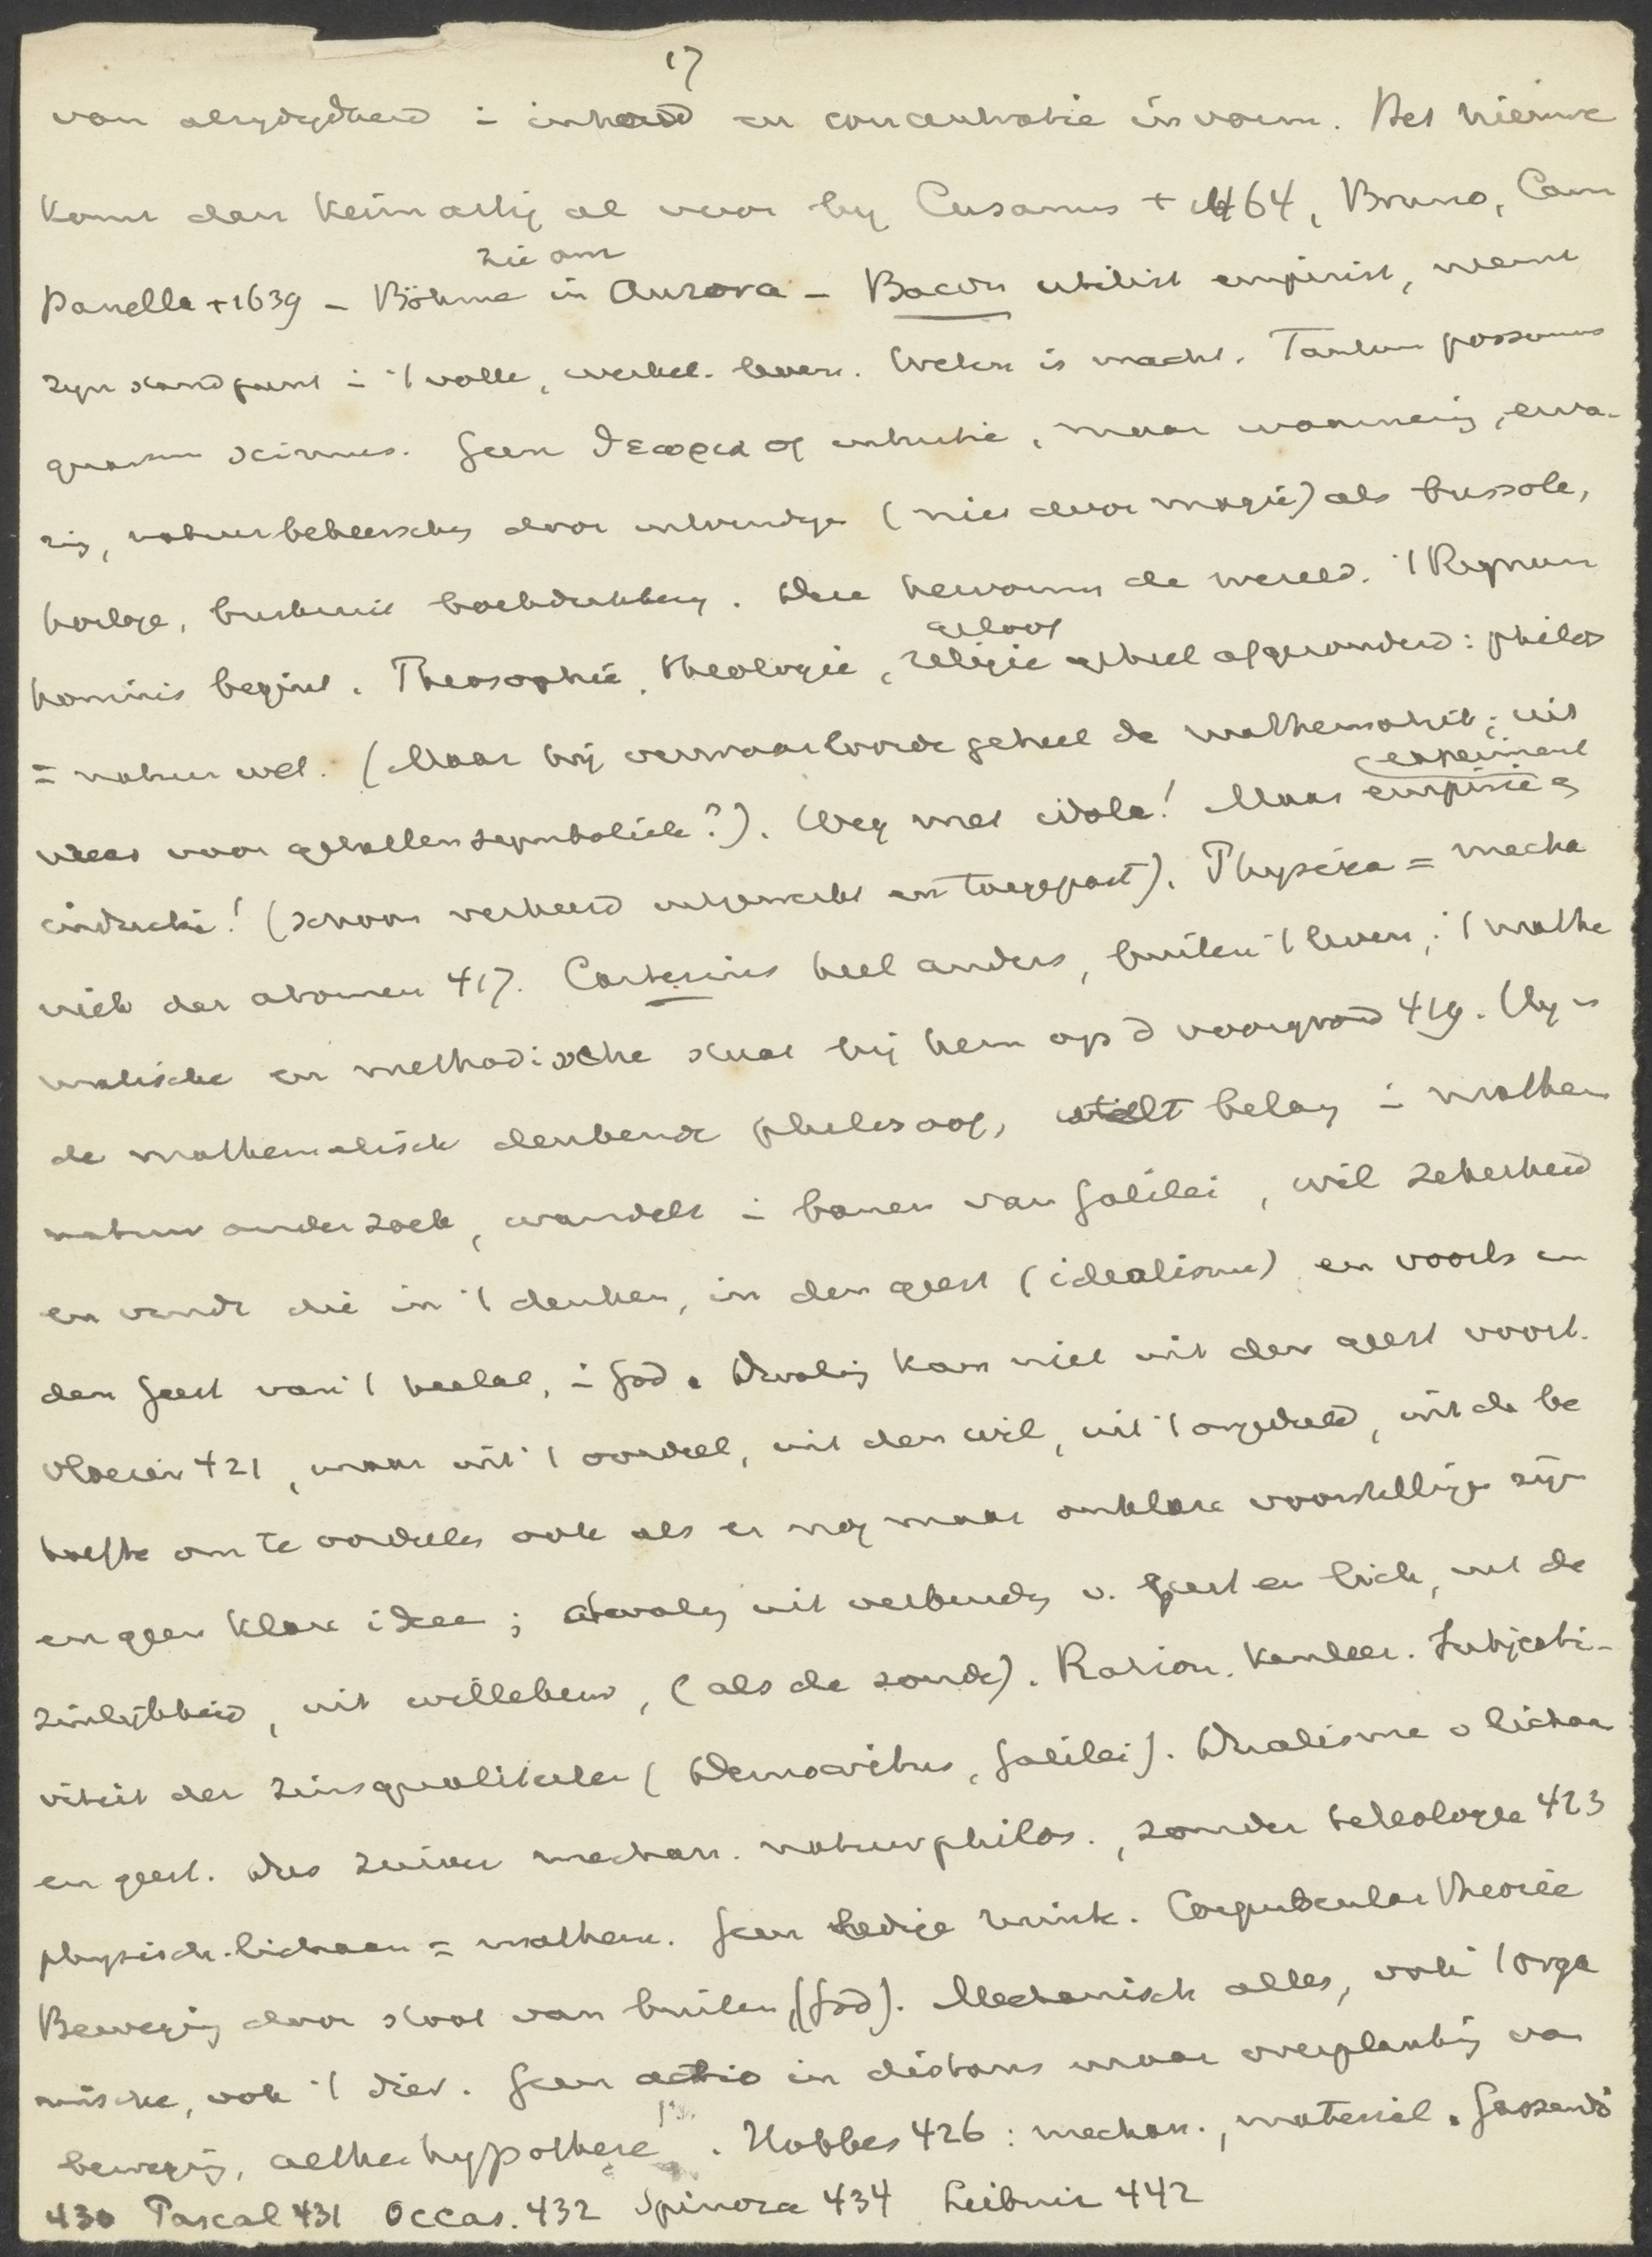 17
van alzijdigheid i inhoud en concentratie in vorm. Het nieuwe
komt dan kiemartig al voor by Cusanus + 1464, Bruno, Cam
zie om
panella + 1639 – Böhme in Aurora – Bacon utilist empirist, neemt
zyn standpunt i 't volle, werkel. leven. Weten is macht. Tantum possumus
quantum scimus. Geen θεωρια of intuitie, maar waarneming, erva-
ring, natuurbeheersching door uitvindingen (niet door magie) als bussole,
horloge, buskruit boekdrukking. Deze hervormen de wereld. 't Regnum
geloof
hominis begint. Theosophie, theologie, religie geheel afgezonderd: philos
= natuurwet. (Maar hij verwaarloosde geheel de mathematiek; uit
experiment
vrees voor getallensymboliek?). Weg met idola! Maar empirie en
inductie! (schoon verkeerd uitgewerkt en toegepast). Physica = mecha
niek der atomen 417. Cartesius heel anders, buiten 't leven; 't mathe
matische en methodische staat bij hem op d voorgrond 419. Hy is
de mathematisch denkende philosoof, stelt belang i mathem
natuuronderzoek, wandelt i banen van Galilei, wil zekerheid
en vindt die in 't denken, in den geest (idealisme) en voorts in
den Geest van 't heelal, i God. Dwaling kan niet uit den geest voort-
vloeien 421, maar uit 't oordeel, uit den wil, uit 't ongeduld, uit de be
hoefte om te oordeelen ook als er nog maar onklare voorstellingen zijn
en geen klare idee; dwaling uit verbinding v. geest en lich, uit de
zinlijkheid, uit willekeur, (als de zonde). Ration. kenleer. Subjecti-
viteit der zinsqualiteiten (Democritus, Galilei). Dualisme v lichaam
en geest. Dus zuiver mechan. natuurphilos., zonder teleologie 423
physisch-lichaam = mathem. Geen ledige ruimte. Corpuscular theorie
Beweging door stoot van buiten, (God). Mechanisch alles, ook 't orga
nische, ook 't dier. Geen actio in distans maar overplanting van
beweging, aetherhypothese. Hobbes 426: mechan., materieel. Gassendi
430 Pascal 431 Occas. 432 Spinoza 434 Leibniz 442